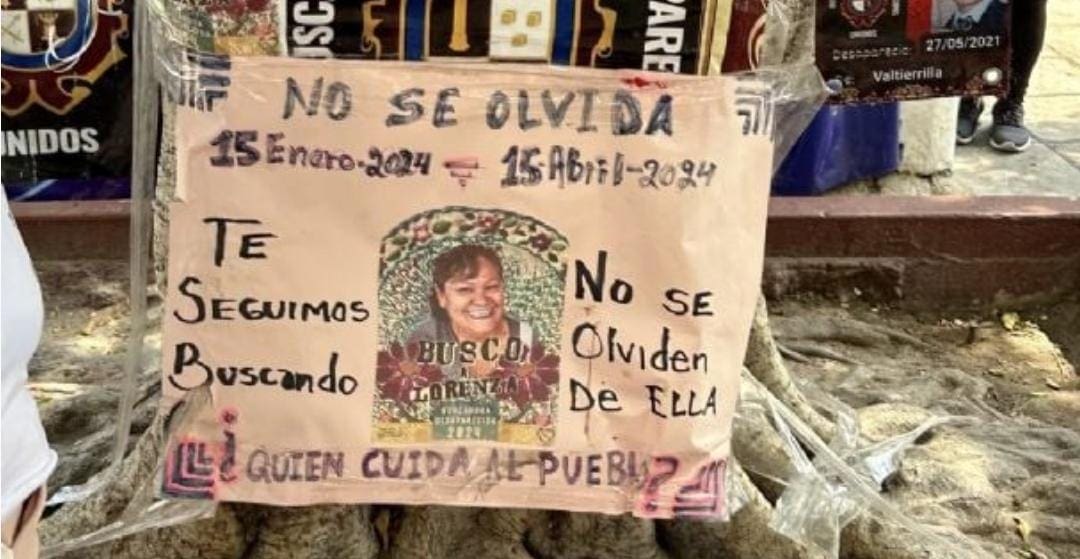 BUSC
PARE
UNIDOS
UNIDOS
Desaparecio: 27/05/2021
Valtierrilla
NO SE OLVIDA
15 Enero-2024 - 15 Abril-2024
TE
SEGUIMOS
BUSCANDO
BUSCO
A
LORENZA
BUSCADORA
DESAPARECIDA
2024
NO SE
Olviden
De ELLA
¿QUIEN CUIDA AL PUEBLO?